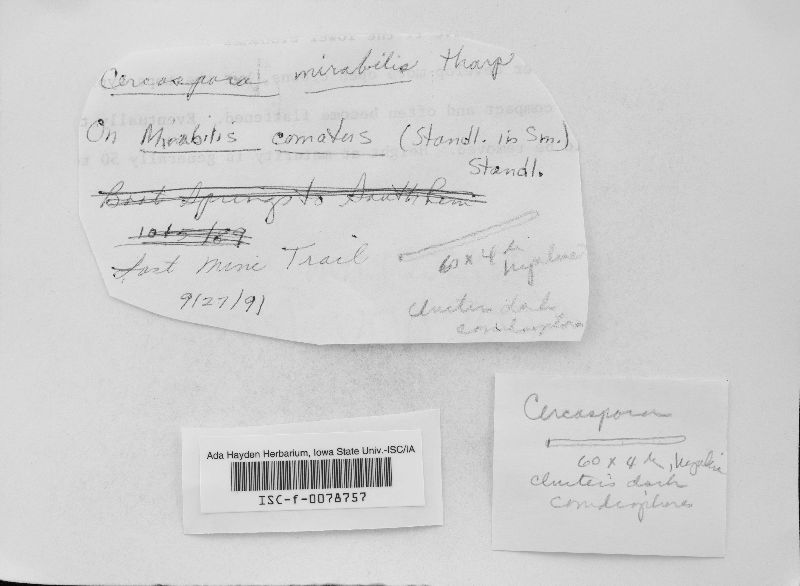 Cercospora mirabilis Tharp
On Mirabilis comatus (Standl. in Sm.)
Standl.
Boot Springs to South Rim
10/5/89
Lost Mine Trail
9/27/91
60 x 4 µ
hyaline
clusters dark
conidiophores
Cercospora
60 x 4 µ, hyaline
clusters dark
conidiophores
Ada Hayden Herbarium, Iowa State Univ.-ISC/IA
ISC-f-0078757
compact and often become flattened. Eventually
maturity is generally 50